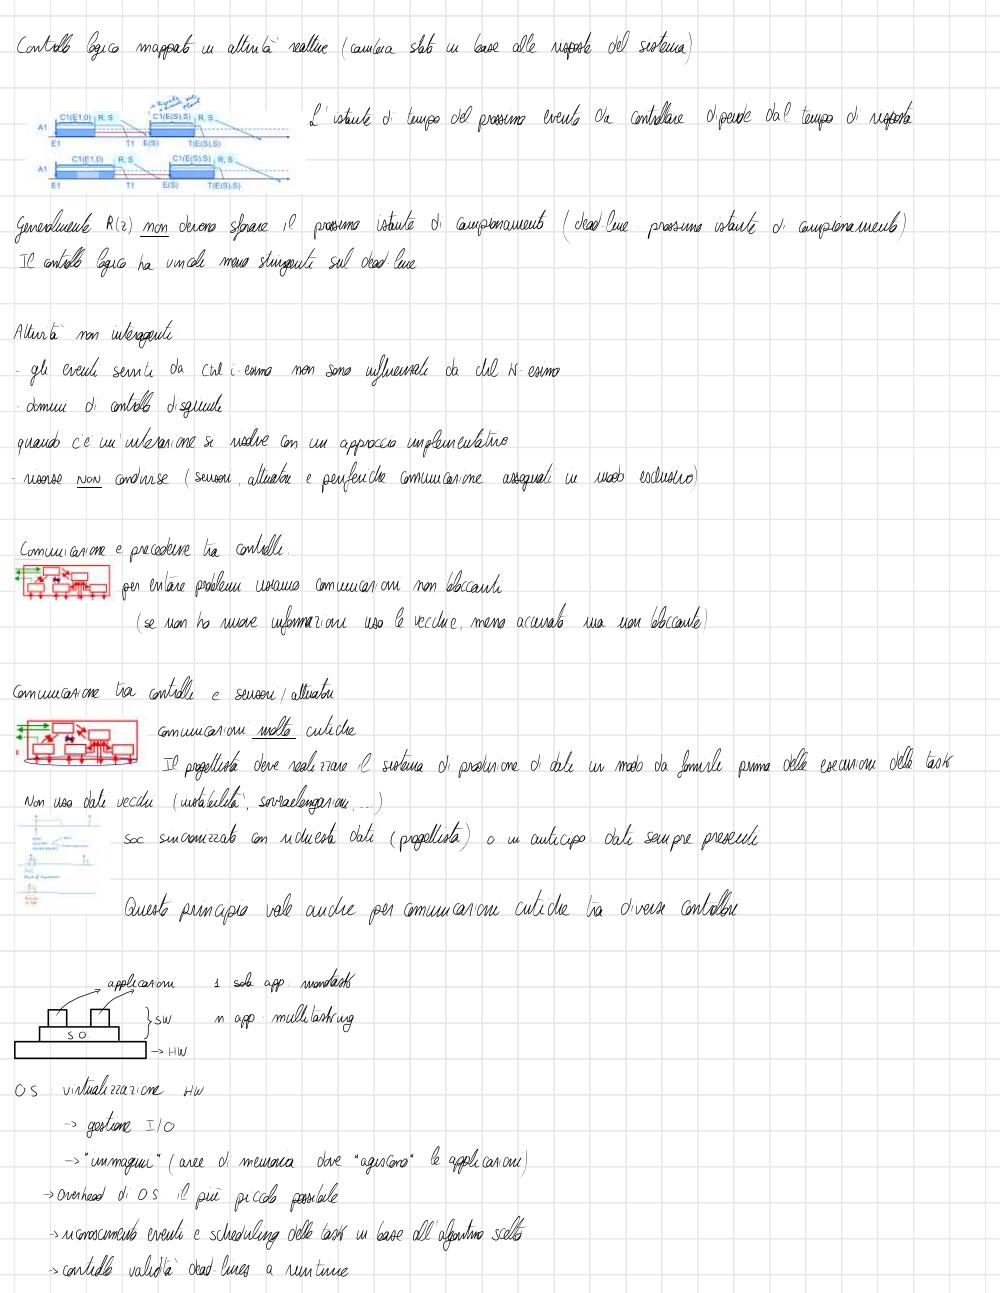 Controllo logico mappato in attività reattive (cambia stato in base alle risposte del sistema)
C1(E1,0) R, S C1(E(S),S) R, S
A1
E1 T1 E(S) T(E(S),S)
L'istante di tempo del prossimo evento da controllare dipende dal tempo di risposta
C1(E1,0) R, S C1(E(S),S) R, S
A1
E1 T1 E(S) T(E(S),S)
Generalmente R(z) non devono sforare il prossimo istante di campionamento (dead-line: prossimo istante di campionamento)
Il controllo logico ha vincoli meno stringenti sul dead-line
Attività non interagenti
- gli eventi serviti da ctrl i-esimo non sono influenzati da ctrl N-esimo
- domini di controllo disgiunti
quando c'è un'interazione si risolve con un approccio implementativo
- risorse NON condivise (sensori, attuatori e periferiche comunicazione assegnati in modo esclusivo)
Comunicazione e precedenze tra controlli.
per evitare problemi usiamo comunicazioni non bloccanti
(se non ho nuove informazioni uso le vecchie, meno accurato ma non bloccante)
Comunicazione tra controlli e sensori/attuatori
comunicazioni molto critiche
Il progettista deve realizzare il sistema di produzione di dati in modo da fornirli prima della esecuzione della task
Non uso dati vecchi (instabilità, sovraelongazioni, ...)
soc sincronizzato con richiesta dati (progettista) o in anticipo: dati sempre presenti
Questo principio vale anche per comunicazioni critiche tra diversi controllori
applicazioni 1 sola app. monotask
SW n app. multitasking
SO
→ HW
OS: virtualizzazione HW
→ gestione I/O
→ "immagini" (aree di memoria dove "agiscono" le applicazioni)
→ overhead di OS il più piccolo possibile
→ riconoscimento eventi e scheduling delle task in base all'algoritmo scelto
→ controllo validità dead-lines a runtime